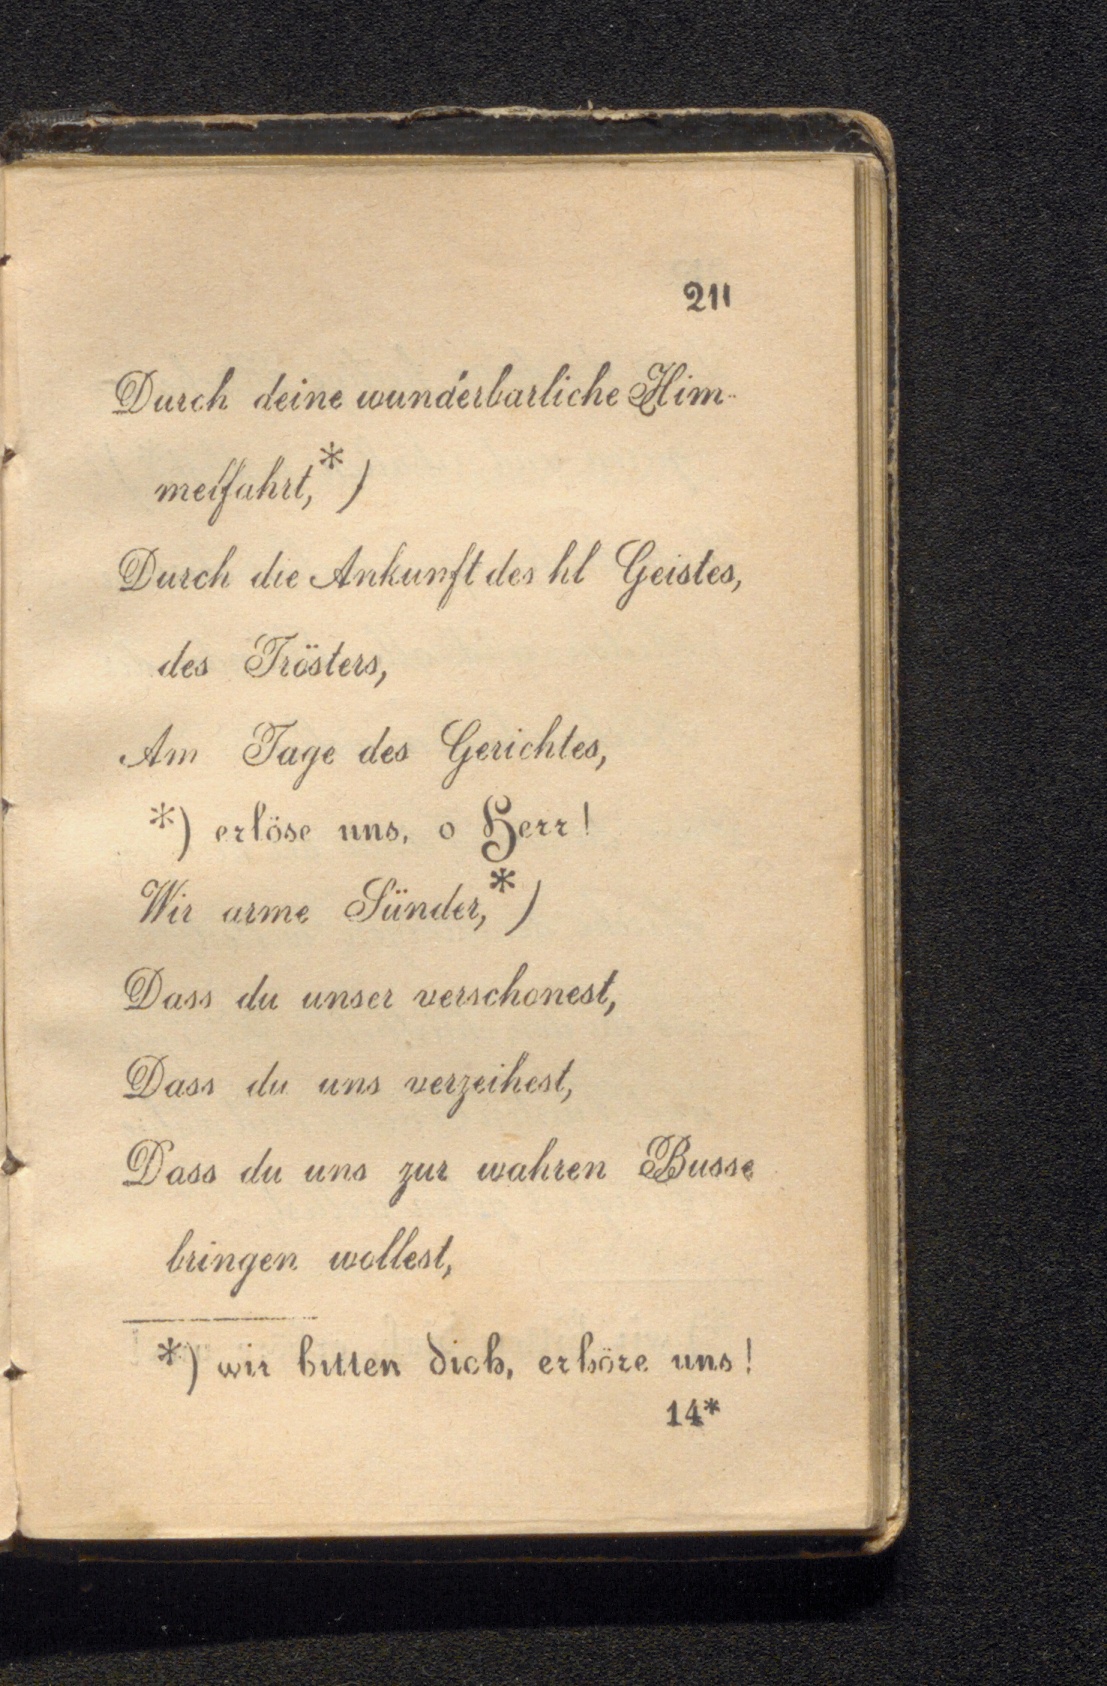 211
Durch deine wunderbarliche Him-
melfahrt,*)
Durch die Ankunft des hl Geistes,
des Trösters,
Am Tage des Gerichtes,
*) erlöse uns, o Herr!
Wir arme Sünder,*)
Dass du unser verschonest,
Dass du uns verzeihest,
Dass du uns zur wahren Busse
bringen wollest,
*) wir bitten dich, erhöre uns!
14*